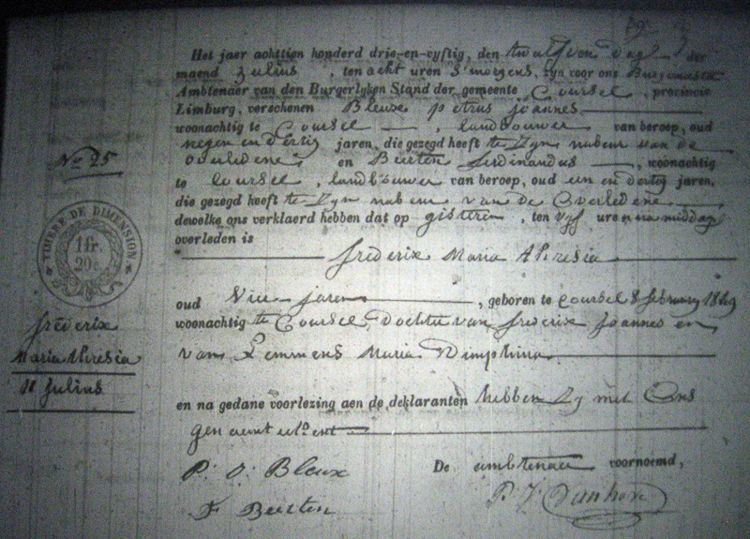 Het jaer achttien honderd drie-en-vyftig, den twalfven dag der
maend Julius, ten acht uren 's morgens, zyn voor ons Burgemeester
Ambtenaer van den Burgerlyken Stand der gemeente Coursel, provincie
Limburg, verschenen Bleux petrus joannes
woonachtig te Coursel, landbouwer van beroep, oud
negen en dertig jaren, die gezegd heeft te zyn nabuer van de
overledene en Beerten ferdinandus, woonachtig
te Coursel, landbouwer van beroep, oud een en dertig jaren,
die gezegd heeft te zyn nabuer van de Overledene
dewelke ons verklaerd hebben dat op gisteren, ten vyf uren na middag
overleden is
frederix Maria theresia
oud Vier jaren, geboren te coursel 8 february 1849
woonachtig te Coursel, Dochter van frederix Joannes en
van Lemmens Maria Dimphina
en na gedane voorlezing aen de deklaranten hebben zy met Ons
geteekent
P. J. Bleux
De ambtenaer voornoemd,
F Beerten
P. J.
No 25
TIMBRE DE DIMENSION
1 fr.
20 c.
frederix
Maria theresia
11 Julius